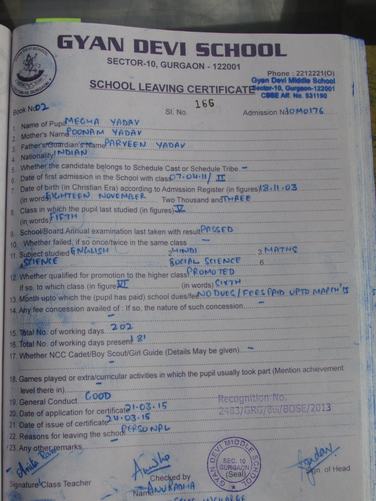 GYAN DEVI SCHOOL
SECTOR-10, GURGAON - 122001
Phone : 2212221(O)
SCHOOL LEAVING CERTIFICATE
Gyan Devi Middle School
Sector-10, Gurgaon-122001
CBSE Aff. No. 531190
Book No. 02
Sl. No. 166
Admission No. 10M0176
1. Name of Pupil MEGHA YADAV
2. Mother's Name POONAM YADAV
3. Father's/Guardian's Name PARVEEN YADAV
4. Nationality INDIAN
5. Whether the candidate belongs to Schedule Cast or Schedule Tribe -
6. Date of first admission in the School with class 07.04.11/ II
7. Date of birth (in Christian Era) according to Admission Register (in figures) 18.11.03
(in words) EIGHTEEN NOVEMBER Two Thousand and THREE
8. Class in which the pupil last studied (in figures) V
(in words) FIFTH
9. School/Board Annual examination last taken with result PASSED
10. Whether failed, if so once/twice in the same class -
11. Subject studied 1. ENGLISH 2. HINDI 3. MATHS
4. SCIENCE 5. SOCIAL SCIENCE 6.
12. Whether qualified for promotion to the higher class PROMOTED
If so, to which class (in figure) VI (in words) SIXTH
13. Month upto which the (pupil has paid) school dues/fee NO DUES / FEES PAID UPTO MARCH'15
14. Any fee concession availed of : If so, the nature of such concession -
15. Total No. of working days 202
16. Total No. of working days present 181
17. Whether NCC Cadet/Boy Scout/Girl Guide (Details may be given) -
18. Games played or extra/curricular activities in which the pupil usually took part (Mention achievement
level there in) -
19. General Conduct GOOD
20. Date of application for certificate 21.03.15
21. Date of issue of certificate 24.03.15
22. Reasons for leaving the school PERSONAL
23. Any other remarks -
Recognition No.
2483/GRG/8th/BOSE/2013
GYAN DEVI MIDDLE SCHOOL
SEC. 10
GURGAON
(Seal)
Signature Class Teacher
Checked by
Name ANURADHA
Sign. of Head